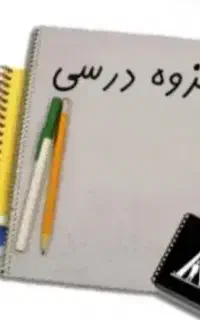 زوه درسی